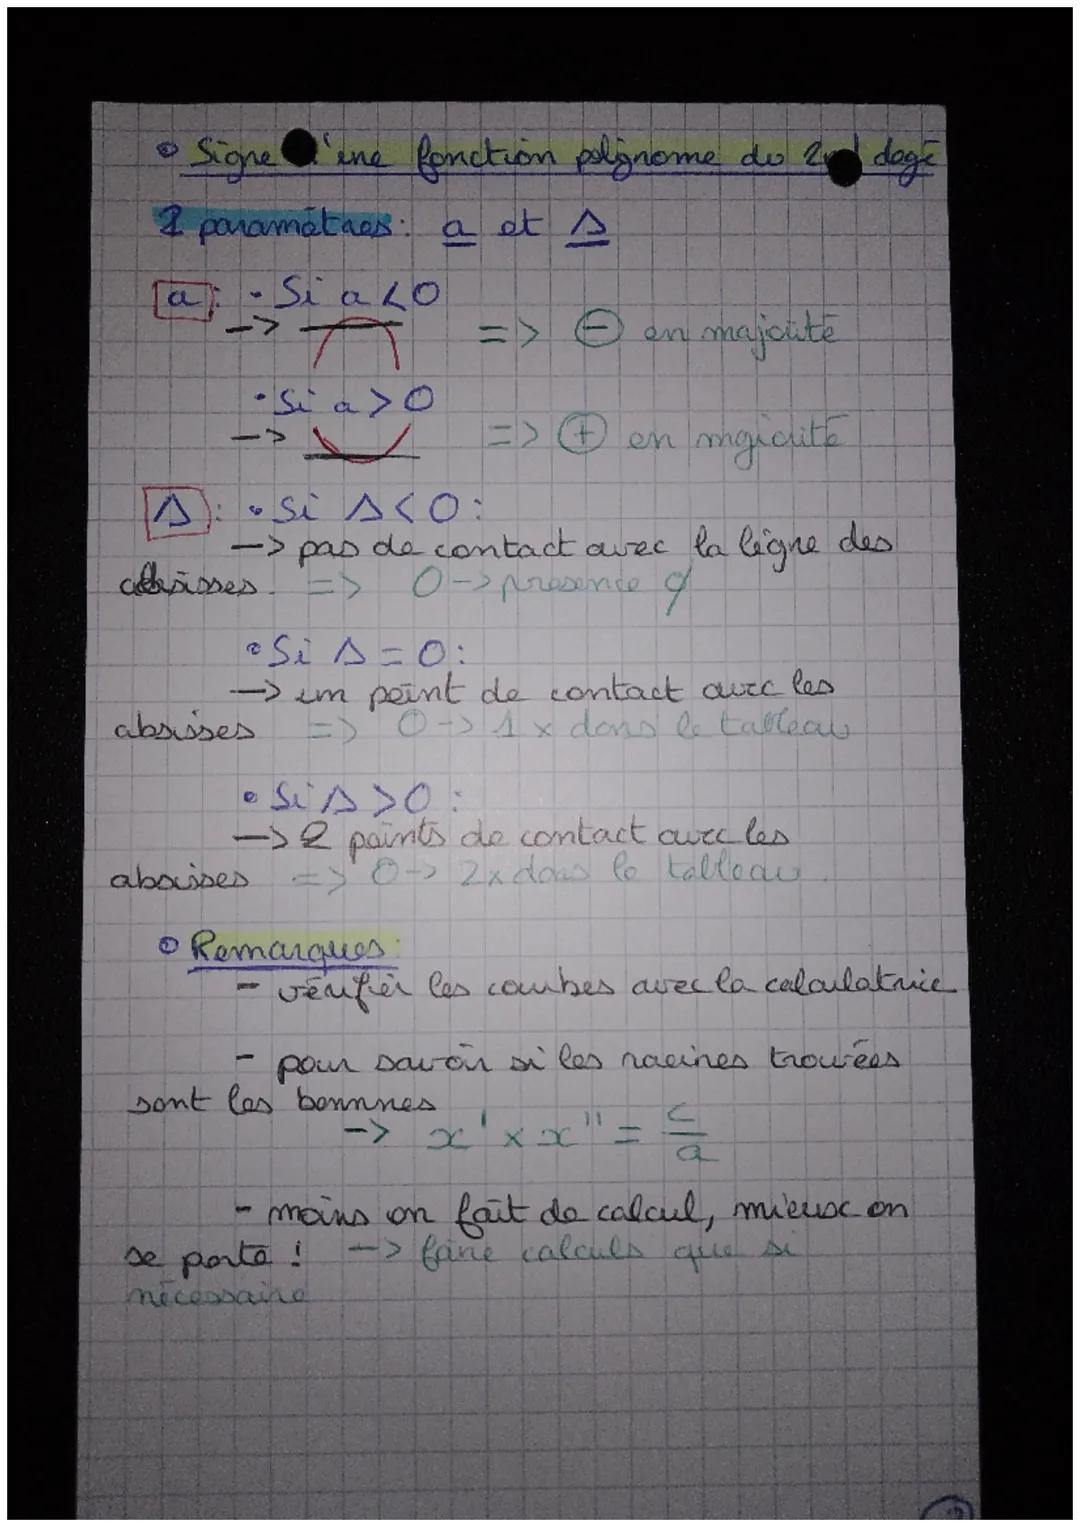 Signe d'une fonction polynome du 2nd degré
2 paramètres : a et Δ
a : • Si a < 0
-> => ⊖ en majorité
• Si a > 0
-> => ⊕ en majorité
Δ : • Si Δ < 0 :
-> pas de contact avec la ligne des
absisses. => 0 -> presence
• Si Δ = 0 :
-> un point de contact avec les
absisses => 0 -> 1 x dans le tableau
• Si Δ > 0 :
-> 2 points de contact avec les
absisses => 0 -> 2x dans le tableau.
Remarques :
- vérifier les courbes avec la calculatrice
- pour savoir si les racines trouvées
sont les bonnnes
-> x' × x'' = c/a
- moins on fait de calcul, mieux on
se porte ! -> faire calculs que si
nécessaire